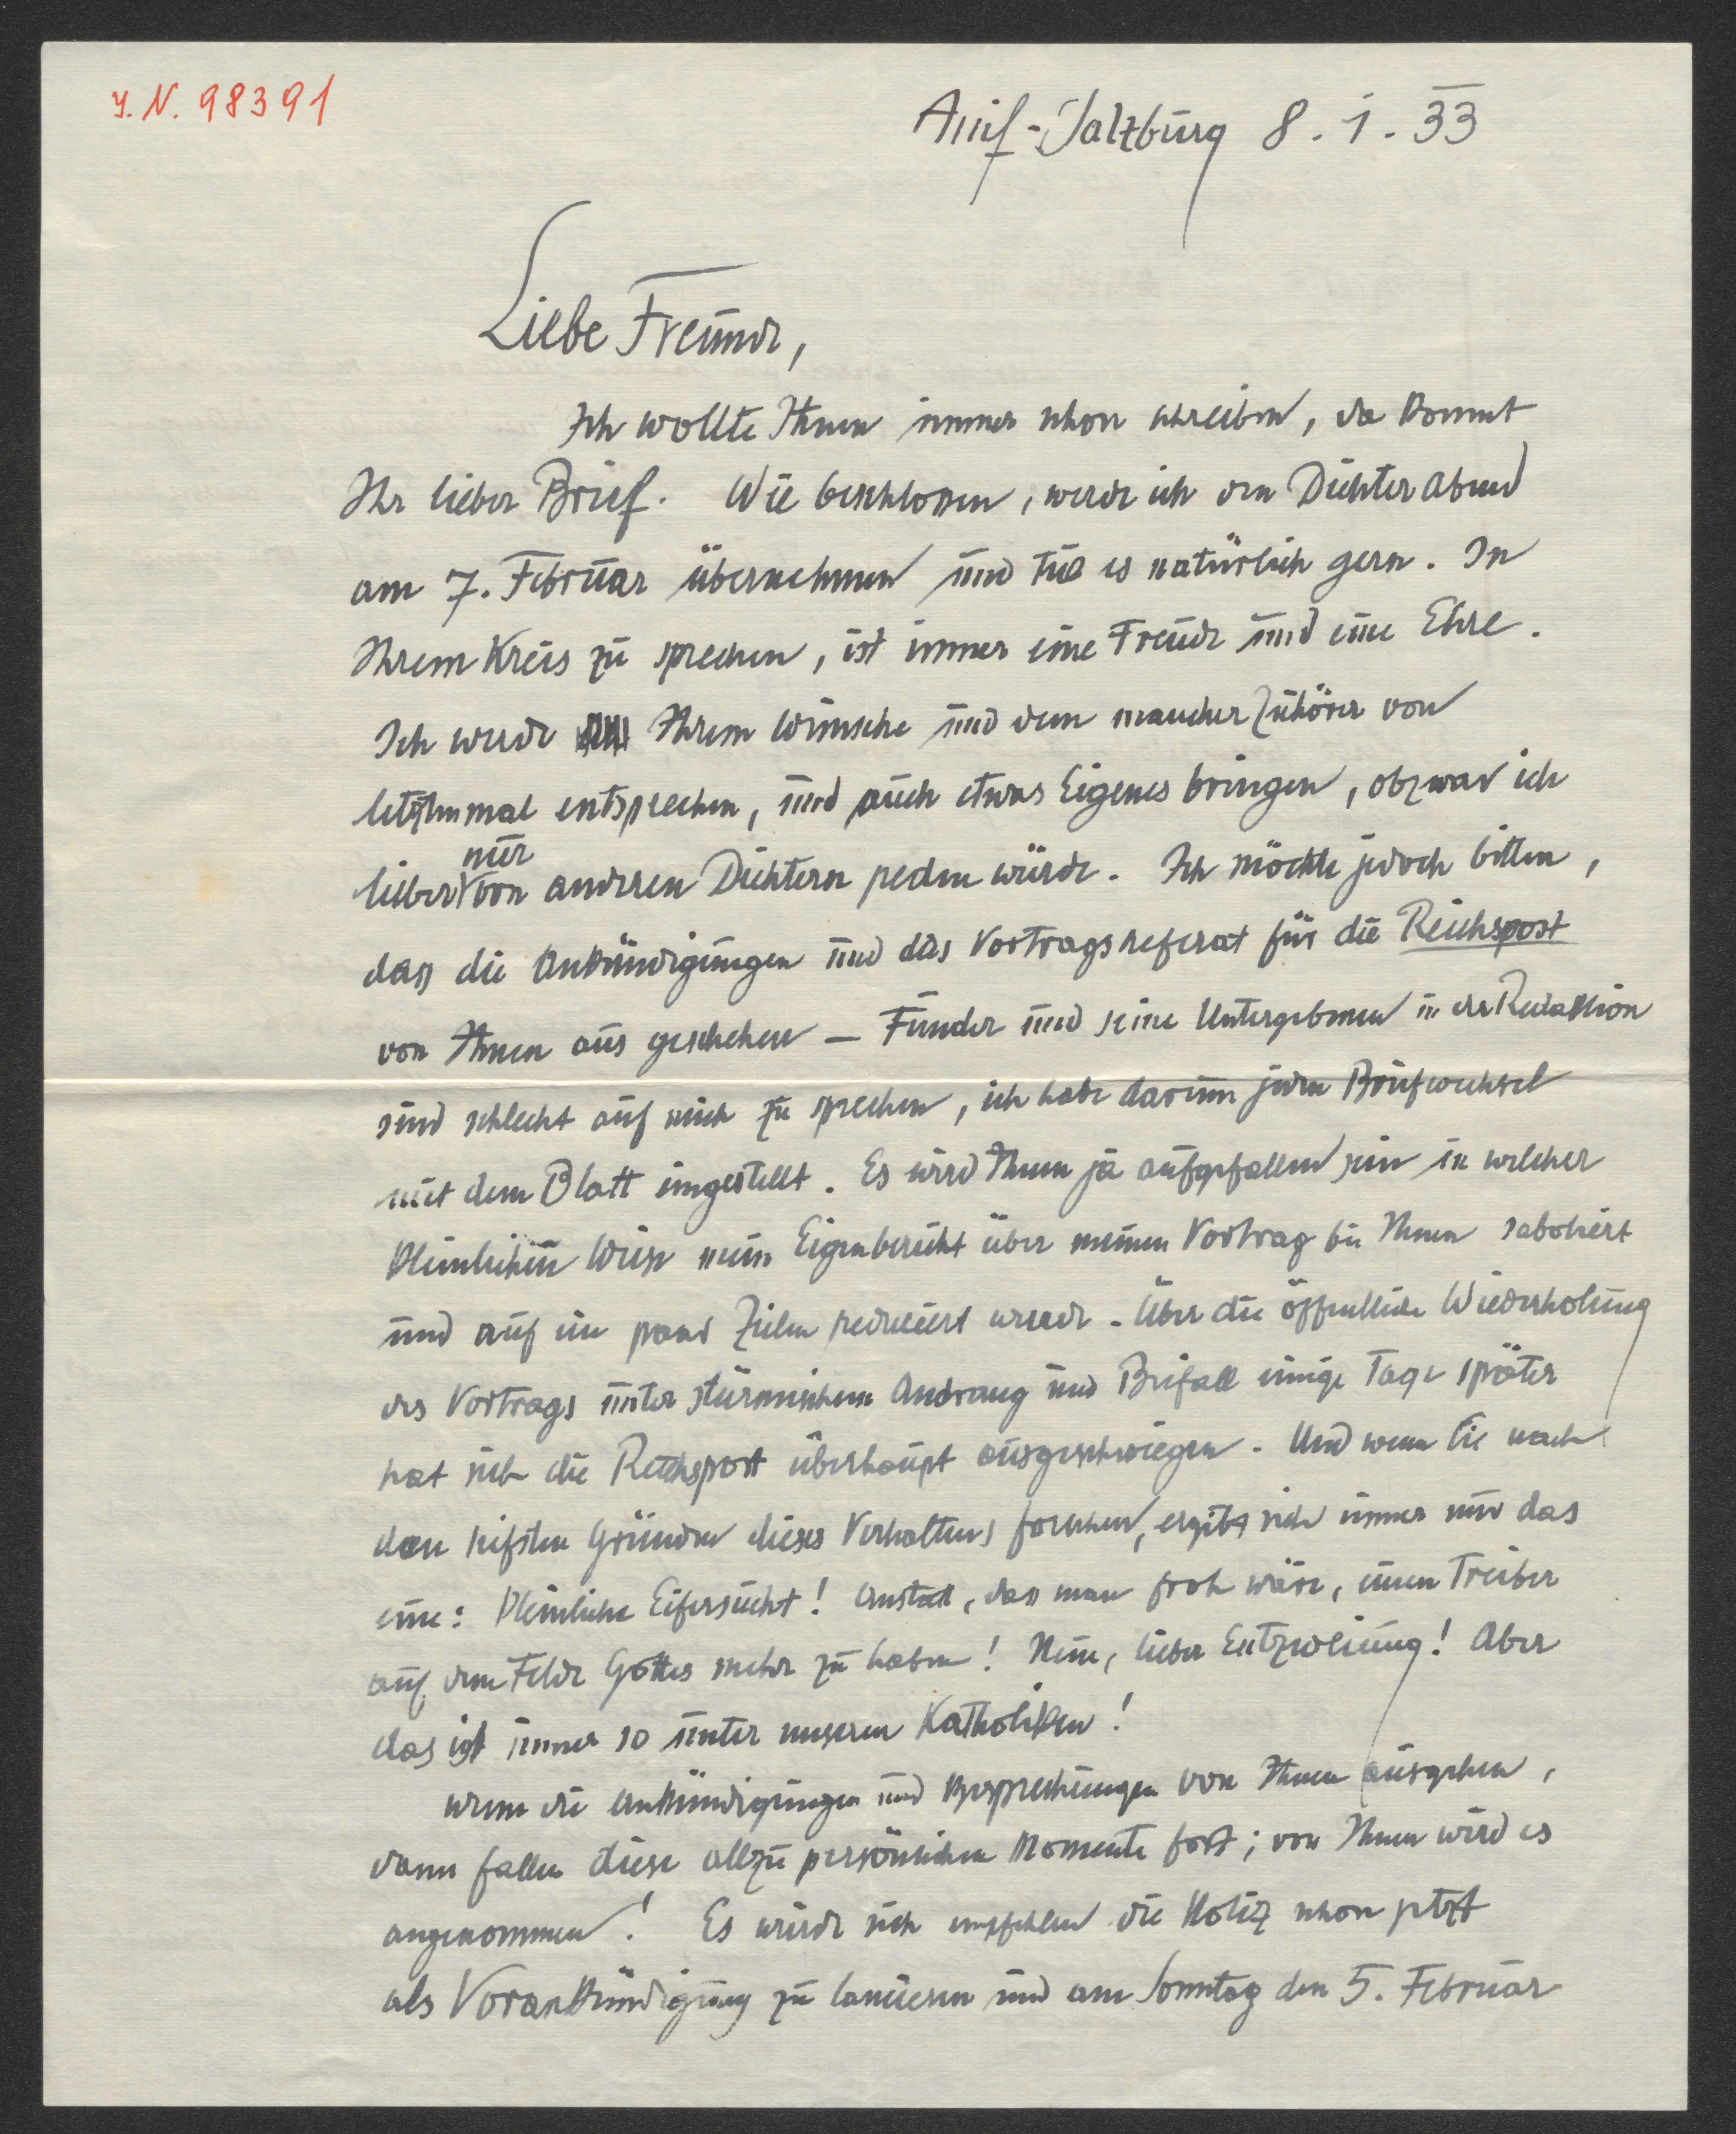 I. N. 98391
Anif-Salzburg 8. 1. 33
Liebe Freunde,
Ich wollte Ihnen immer schon schreiben, da kommt
Ihr lieber Brief. Wie beschlossen, werde ich den Dichterabend
am 7. Februar übernehmen und tue es natürlich gern. In
Ihrem Kreis zu sprechen, ist immer eine Freude und eine Ehre.
Ich werde Ihrem Wunsche und dem mancher Zuhörer von
letztenmal entsprechen, und auch etwas Eigenes bringen, obzwar ich
lieber nur von anderen Dichtern reden würde. Ich möchte jedoch bitten,
dass die Ankündigungen und das Vortragsreferat für die Reichspost
von Ihnen aus geschehen – Funder und seine Untergebenen in der Redaktion
sind schlecht auf mich zu sprechen, ich habe darum jeden Briefwechsel
mit dem Blatt eingestellt. Es wird Ihnen ja aufgefallen sein in welcher
kleinlichen Weise mein Eigenbericht über meinen Vortrag bei Ihnen sabotiert
und auf ein paar Zeilen reduciert wurde. Über die öffentliche Wiederholung
des Vortrags unter stürmischem Andrang und Beifall einige Tage später
hat sich die Reichspost überhaupt ausgeschwiegen. Und wenn Sie nach
den tiefsten Gründen dieses Verhaltens forschen, ergibt sich immer nur das
eine: kleinliche Eifersucht! Anstatt, dass man froh wäre, einen Treiber
auf dem Felde Gottes mehr zu haben! Nein, lieber Entzweiung! Aber
das ist immer so unter unseren Katholiken!
Wenn die Ankündigungen und Besprechungen von Ihnen ausgehen,
dann fallen diese allzu persönlichen Momente fort; von Ihnen wird es
angenommen! Es würde sich empfehlen die Notiz schon jetzt
als Vorankündigung zu lancieren und am Sonntag den 5. Februar